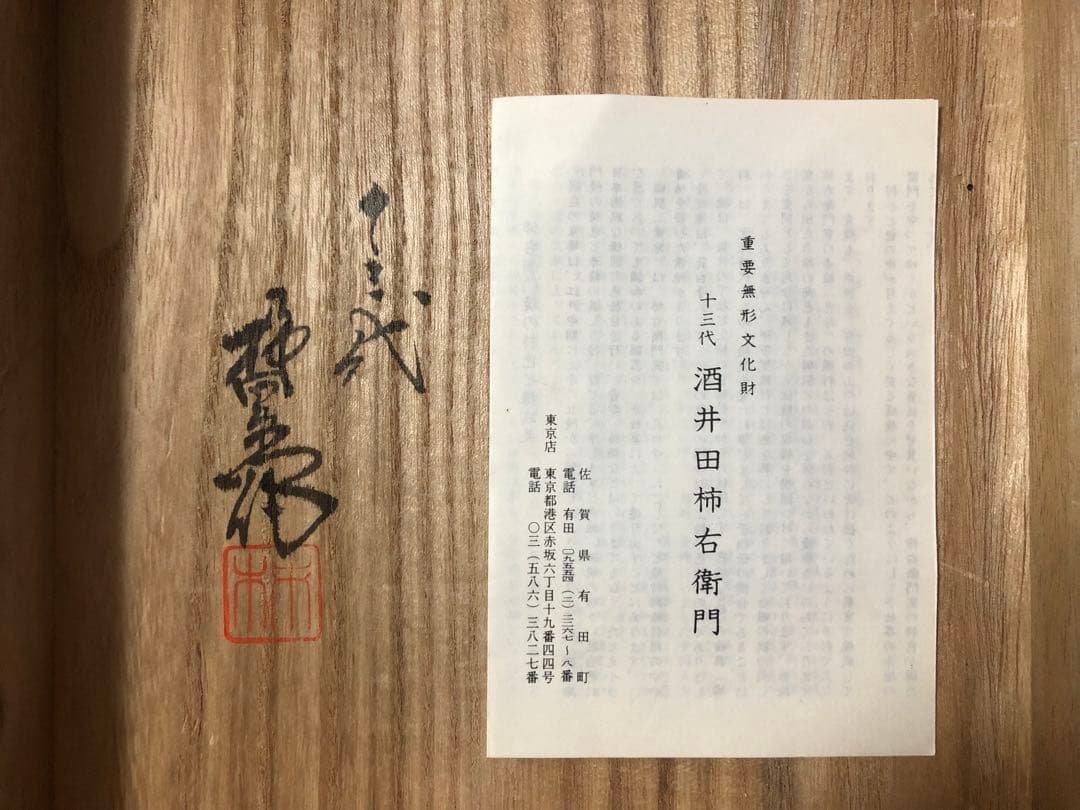 重要無形文化財
十三代 酒井田柿右衛門
佐賀県有田町
電話 有田 〇九五五四(二)二三六七~八番
東京店 東京都港区赤坂六丁目十九番四四号
電話 〇三(五八六)三八二七番
十三代
柿右衛門